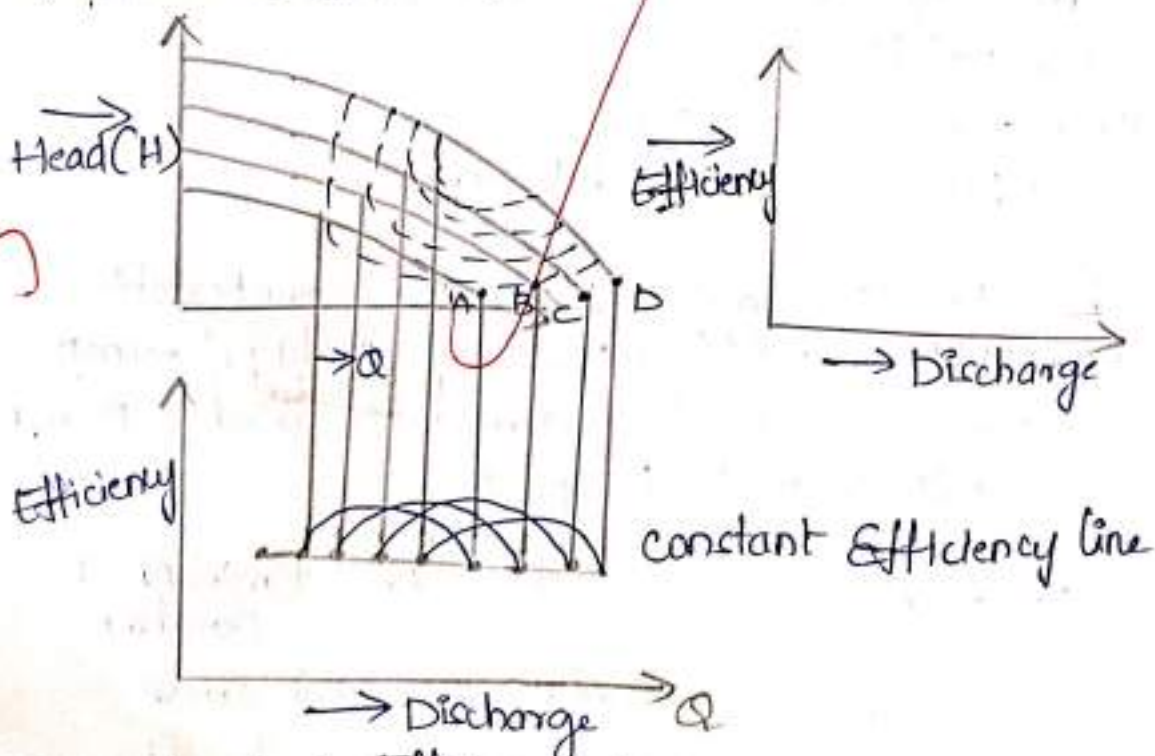 Head(H)
A B C D
→ Q
Efficiency
→ Discharge
Efficiency
constant Efficiency line
→ Discharge Q